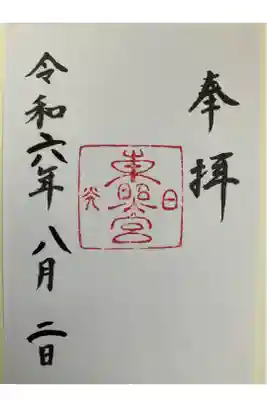 奉拝
日光
東照宮
令和六年 八月 二日